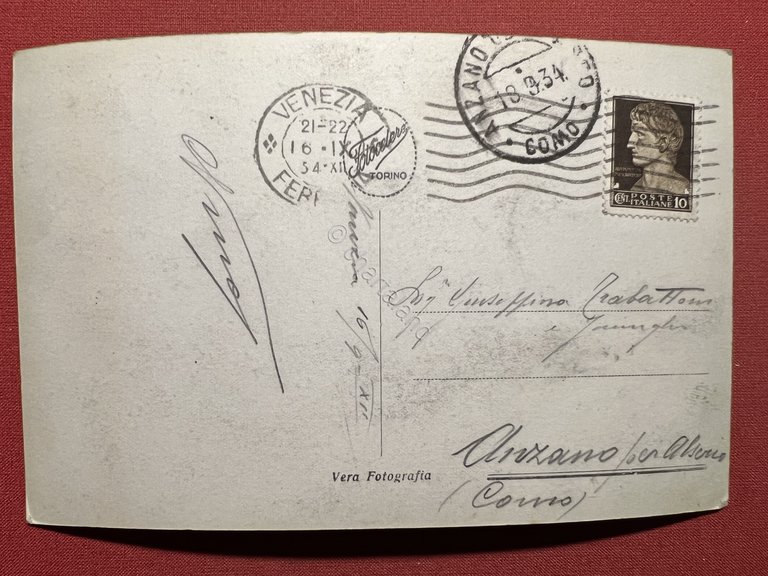 VENEZIA
21-22
16·IX
34·XII
FERR
Fotocelere
TORINO
ANZANO
18.9.34
COMO
POSTE
ITALIANE
CENT. 10
Venezia 16/9-XII
Giuseppina Trabattoni
e famiglia
Anzano per Alserio
(Como)
Vera Fotografia